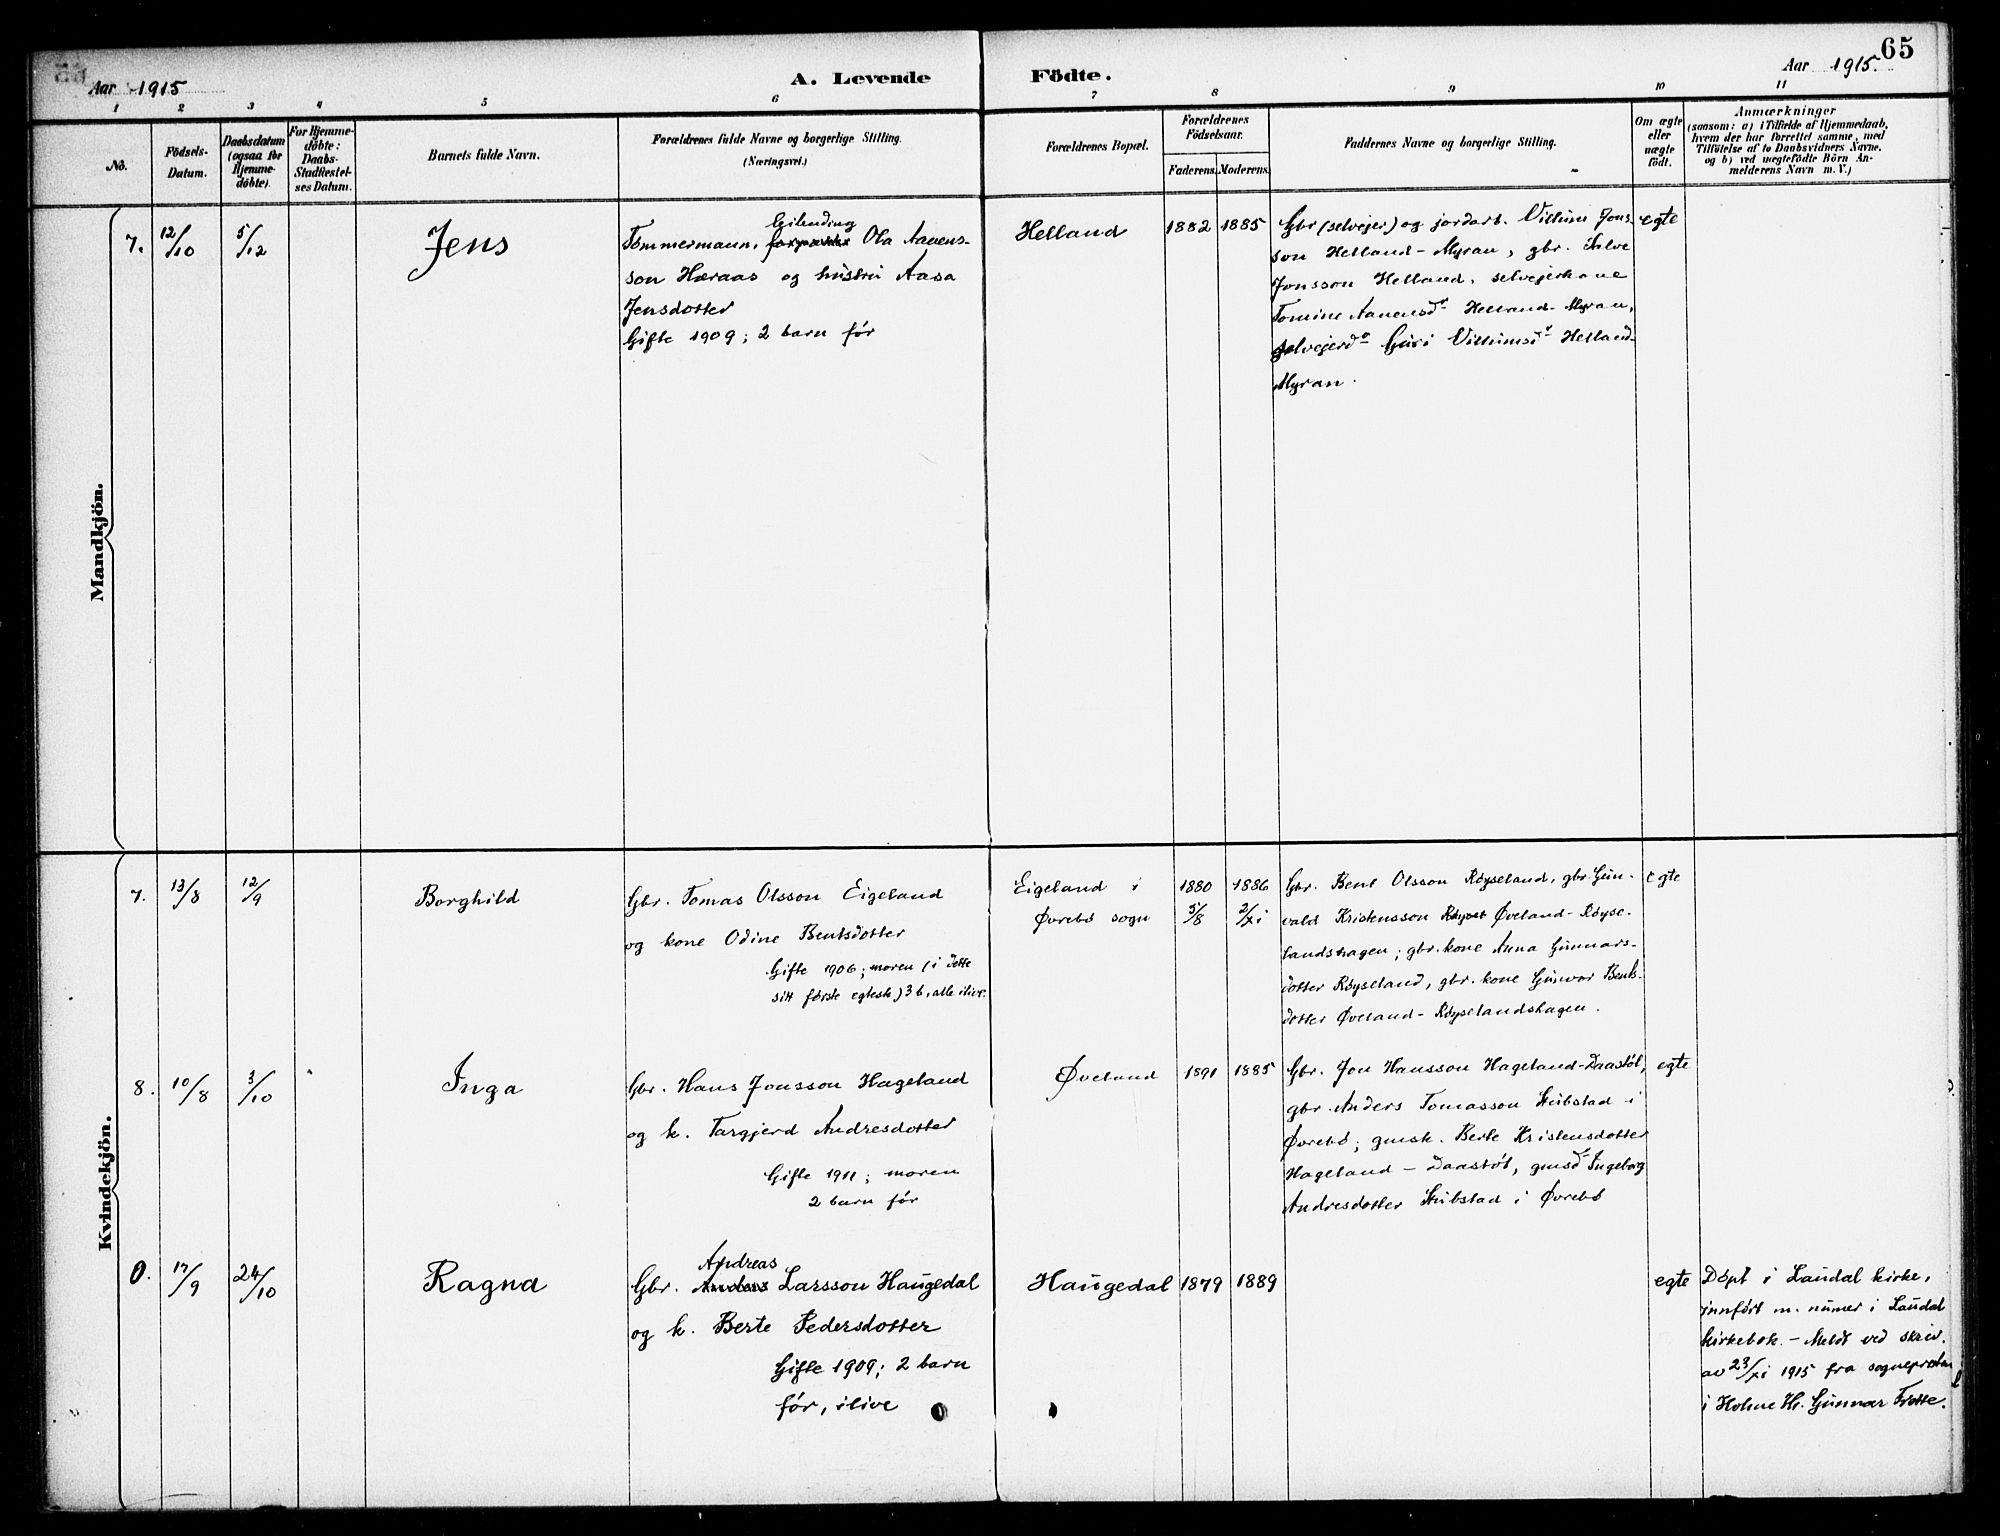 65
Aar 1915
A. Levende Födte.
Aar 1915.
1 2 3 4 5 6 7 8 9 10 11
No.
Födsels-
Datum.
Daabsdatum
(ogsaa for
Hjemme-
döbte).
For Hjemme-
döbte:
Daabs-
Stadfæstel-
ses Datum.
Barnets fulde Navn.
Forældrenes fulde Navne og borgerlige Stilling.
(Næringsvei.)
Forældrenes Bopæl.
Forældrenes
Födselsaar.
Faderens. Moderens.
Faddernes Navne og borgerlige Stilling.
Om ægte
eller
uægte
födt.
Anmærkninger
(saasom: a) i Tilfælde af Hjemmedaab,
hvem der har forrettet samme, med
Tilföielse af to Daabsvidners Navne.
og b) ved uægtefödte Börn An-
melderens Navn m. V.)
Mandkjön.
7.
12/10
5/12
Jens
Gilending
Tømmermann, Ola Aanens-
son Høraas og hustru Aasa
Jensdotter
Gifte 1909; 2 barn før
Helland
1882
1885
Gbr (selvejer) og jordarb. Vilhim Jons-
son Helland-Myran, gbr. Salve
Jonsson Helland, selvejerkone
Tomine Aanensdr Helland-Myran,
selvejerdr Guri Vilhimsdr Helland-
Myran.
egte
Kvindekjön.
7.
13/8
12/9
Borghild
Gbr. Tomas Olsson Eigeland
og kone Odine Bentsdotter
Gifte 1906; moren (i dette
sitt første egtesk) 3 b, alle ilive.
Eigeland i
Øvrebø sogn
1880
5/8
1886
2/xi
Gbr. Bent Olsson Røyseland, gbr. Gun-
vald Kristensson Øveland-Røyse-
landshagen; gbr. kone Anna Gunnars-
dotter Røyseland, gbr. kone Gunvor Bents-
dotter Øveland-Røyselandshagen.
egte
8.
10/8
3/10
Inga
Gbr. Hans Jonsson Hageland
og k. Targjerd Andresdotter
Gifte 1911; moren
2 barn før
Øveland
1891
1885
Gbr. Jon Hansson Hageland-Daastøl,
gbr. Anders Tomasson Stubstad i
Øvrebø; gmsk. Berte Kristensdotter
Hageland-Daastøl, gmsdr Ingeborg
Andresdotter Stubstad i Øvrebø
egte
0.
17/9
24/10
Ragna
Andreas
Gbr. Anders Larsson Haugedal
og k. Berte Pedersdotter
Gifte 1909; 2 barn
før, ilive
Haugedal
1879
1889
egte
Døpt i Laudal kirke,
innført m. numer i Laudal
kirkebok. - Meldt ved skriv.
av 23/xi 1915 fra sognepresten
i Holme Hr. Gunnar Tveite.